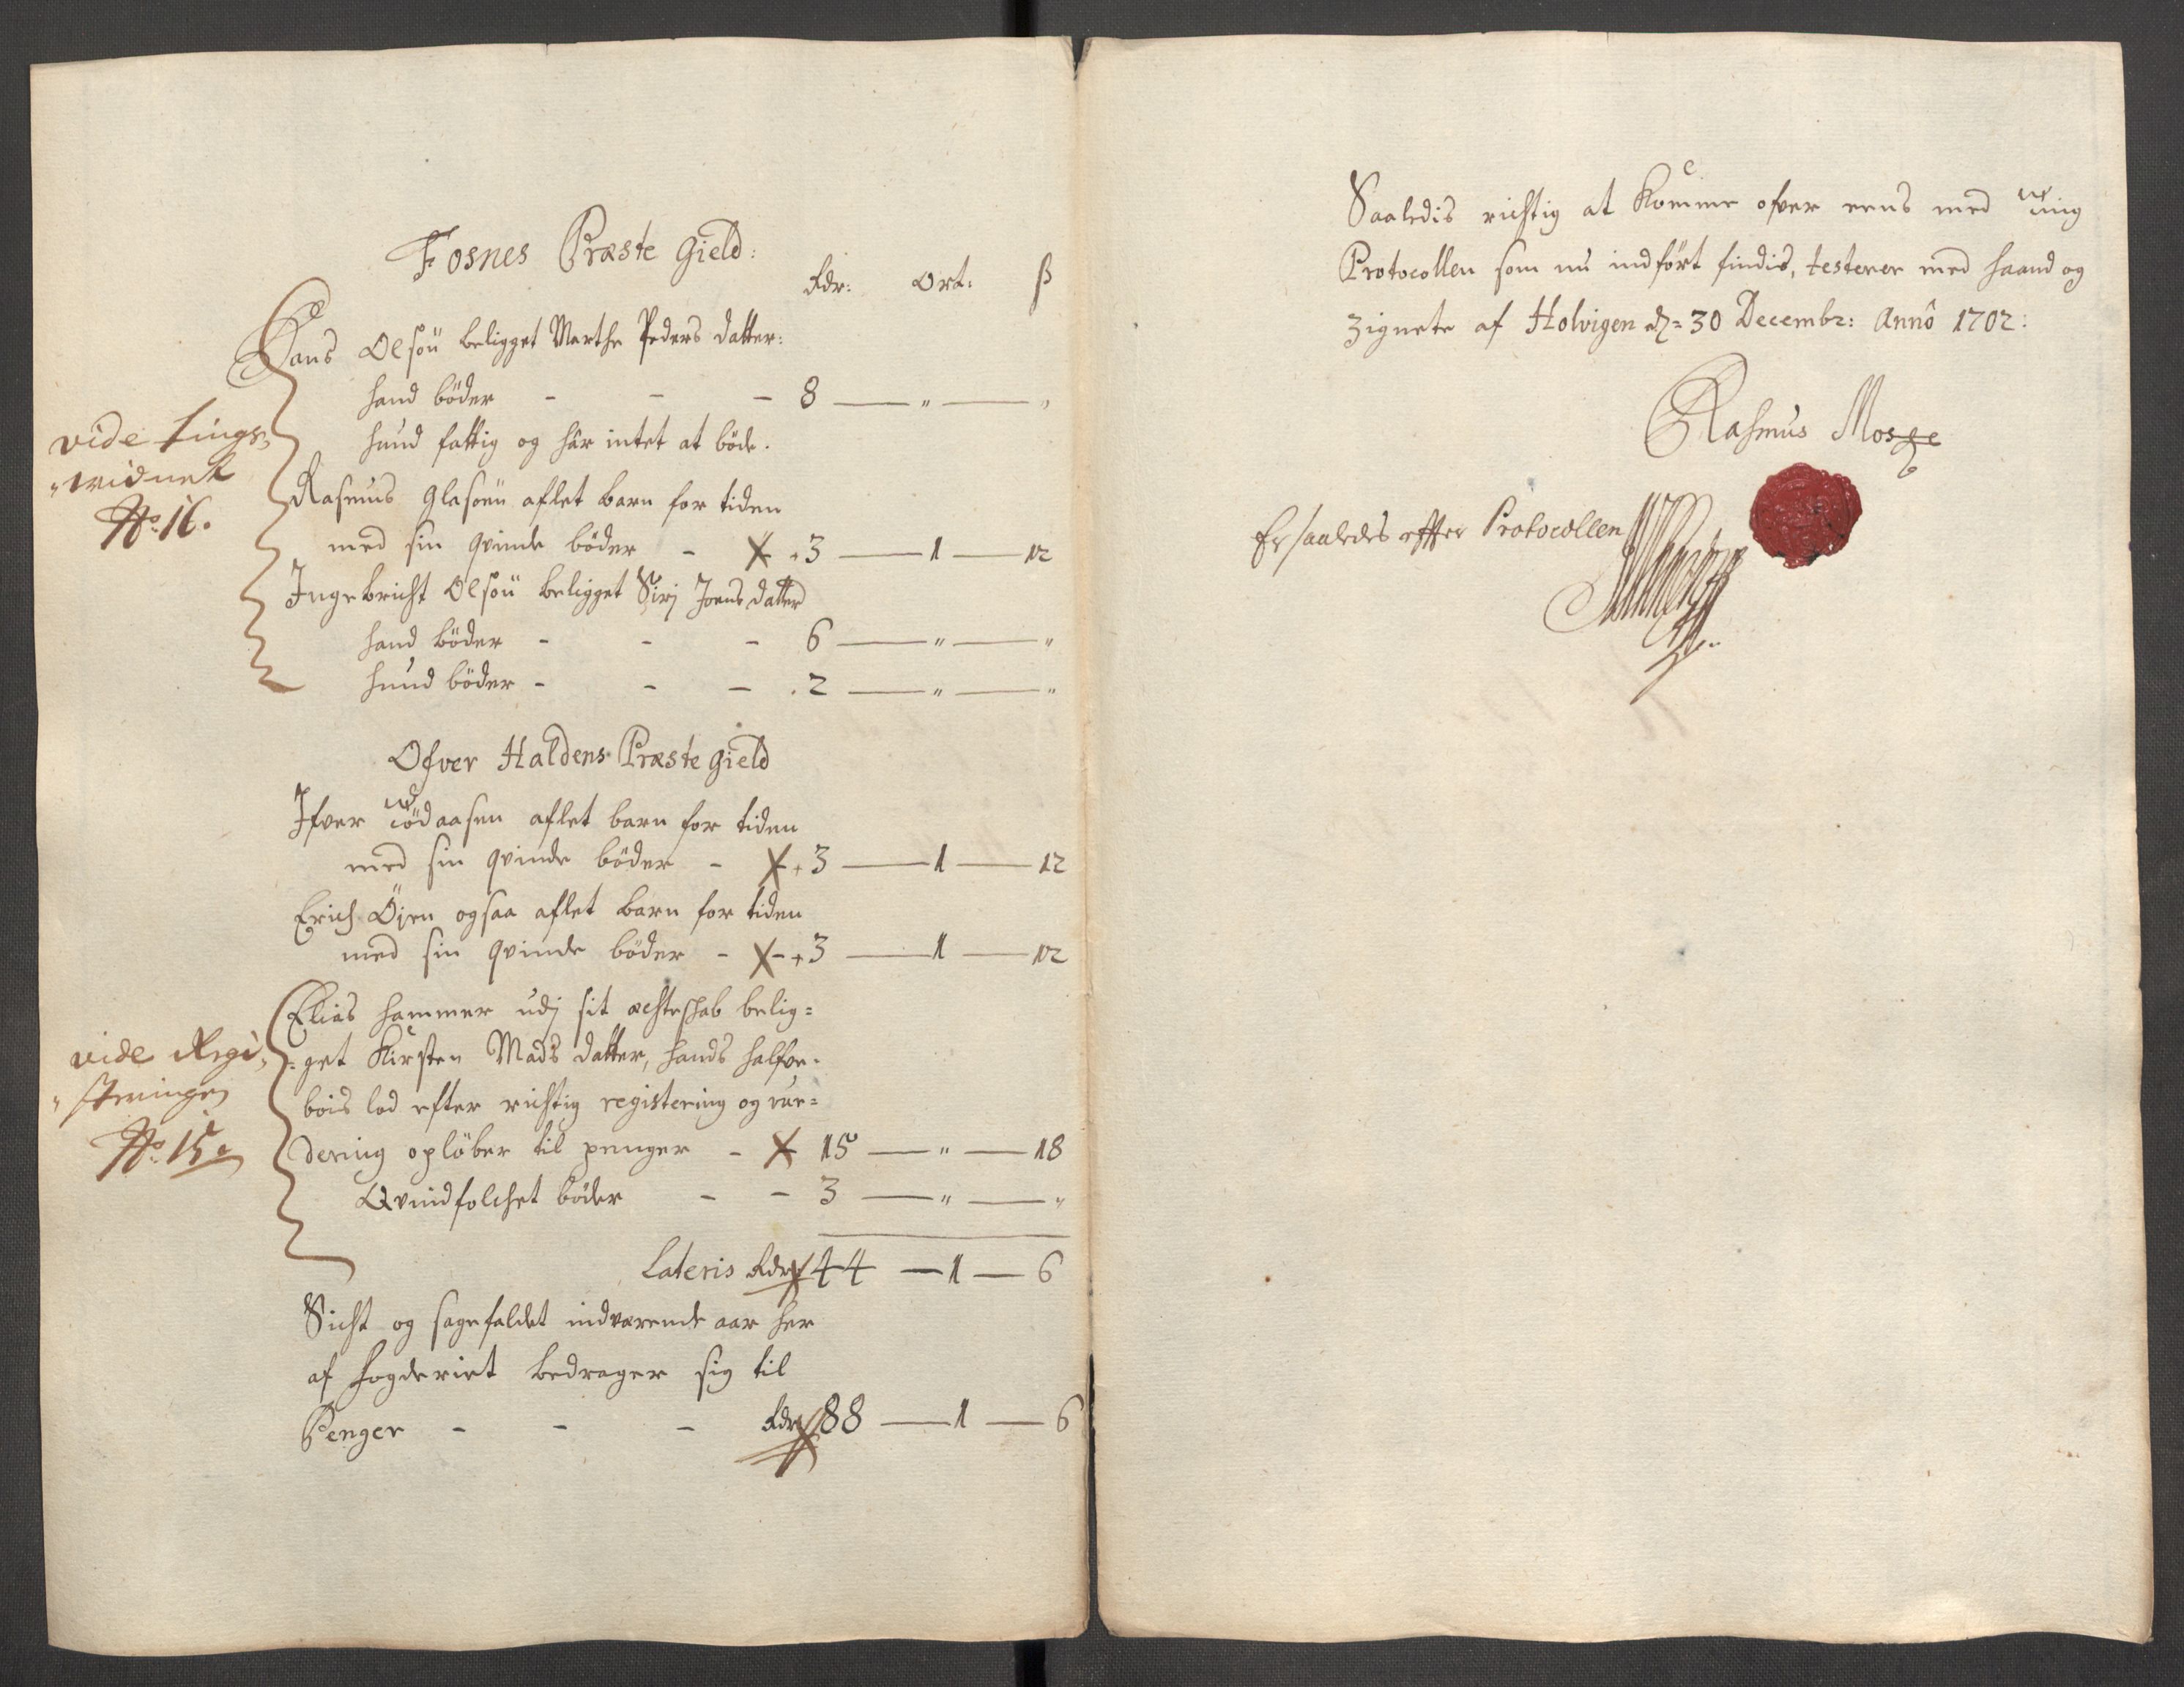 Fosnes Præste gield:
Rdr: Ort: ß
Hans Olsøn beligget Marthe Peders datter:
hand bøder - - - 8 — " — "
hund fattig og har intet at bøde.
vide tings,
"widnet
No. 16.
Rasmus Glasøen aflet barn for tiden
med sin qvinde bøder - X + 3 — 1 — 12
Ingebricht Olsøn beligget Sirj Joens datter
hand bøder - - - 6 — " — "
hund bøder - - - . 2 — " — "
Ofver Haldens Præste gield
Ifver Rødaasen aflet barn for tiden
med sin qvinde bøder - X + 3 — 1 — 12
Erich Öjen ogsaa aflet barn for tiden
med sin qvinde bøder - X - + 3 — 1 — 12
Elias Hammer udj sit echteschab belig=
=get Kirsten Mads datter, hands halfve
bois lod efter richtig registering og vur=
dering opløber til penger - X 15 — " — 18
vide Regi,
"streringen
No. 15.
Qvindfolchet bøder - - 3 — " — "
Lateris Rdr 44 — 1 — 6
Sicht og sagefaldet indværende aar her
af fogderiet bedrager sig til
Penger - - - Rdr 88 — 1 — 6
Saaledis richtig at komme ofver eens med ting
Protocollen som nu indført findis, testerer med haand og
Zignete af Holvigen dz= 30 Decembr: Annô 1702:
Rasmus Mosge
Er saaledes effter Protocollen